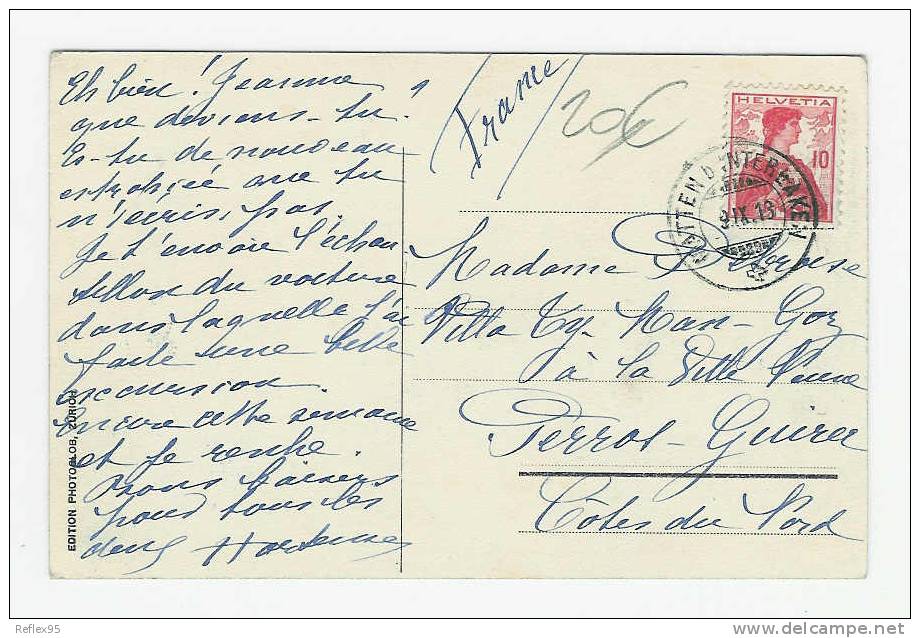 Eh bien ! Jeanne
que deviens-tu.
Es-tu de nouveau
que tu
n'écris pas.
Je t'envoie l'échan
tillon du voiture
dans laquelle j'ai
faite une belle
excursion.
Encore cette semaine
et je rentre.
bons baisers
pour tous les
deux Hortense
EDITION PHOTOGLOB, ZÜRICH
France
20€
HELVETIA
10
MATTEN B. INTERLAKEN
9.IX.13
Madame
Villa Ty- Man- Goz
à la Ville
Perros-Guirec
Côtes du Nord
Reflex95
www.delcampe.net